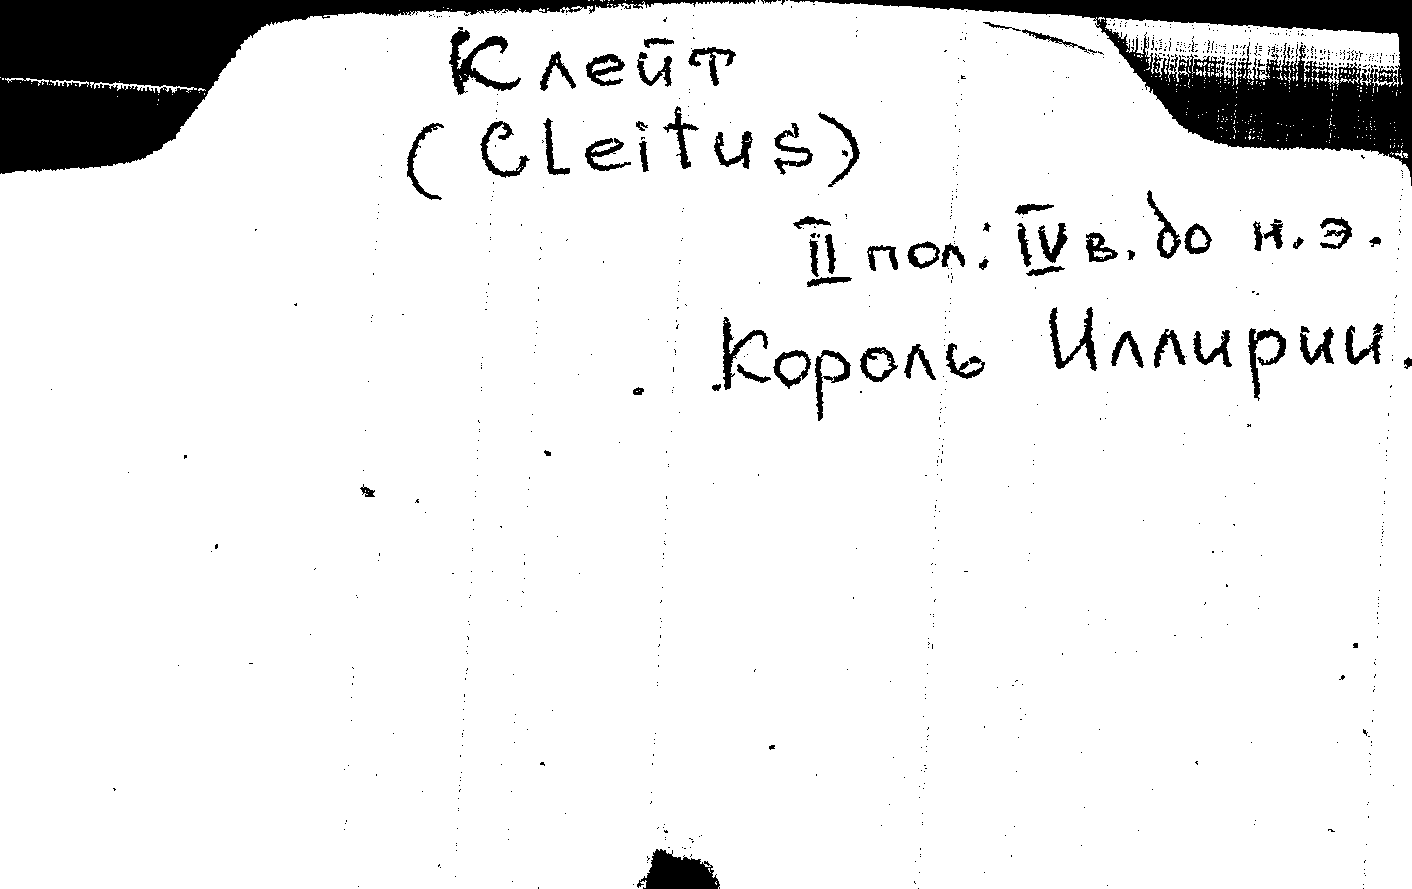 Клейт
(Cleitus)
II пол. IV в. до н.э.
Король Иллирии.